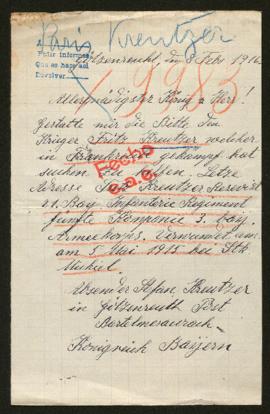 Paris Kreutzer
Prière informer
que es hape aof
Götzenreuth, den 8 Febr 1916
19983
Allergnädigster König u Herr!
Gestatte mir die Bitte den
Krieger Fritz Kreutzer welcher
in Frankreich gekämpf hat
suchen zu lassen. Letze
Adresse Fritz Kreutzer Reservist
21. Bay Infanterie Regiment
fünfte Kompenie 3. bay.
Armeekorps. Verwundet am
am 5 Mai 1915 bei St
Mihiel.
Absender Stefan Kreutzer
in Götzenreuth Post
Bertelmesaurach
Königreich Baÿern